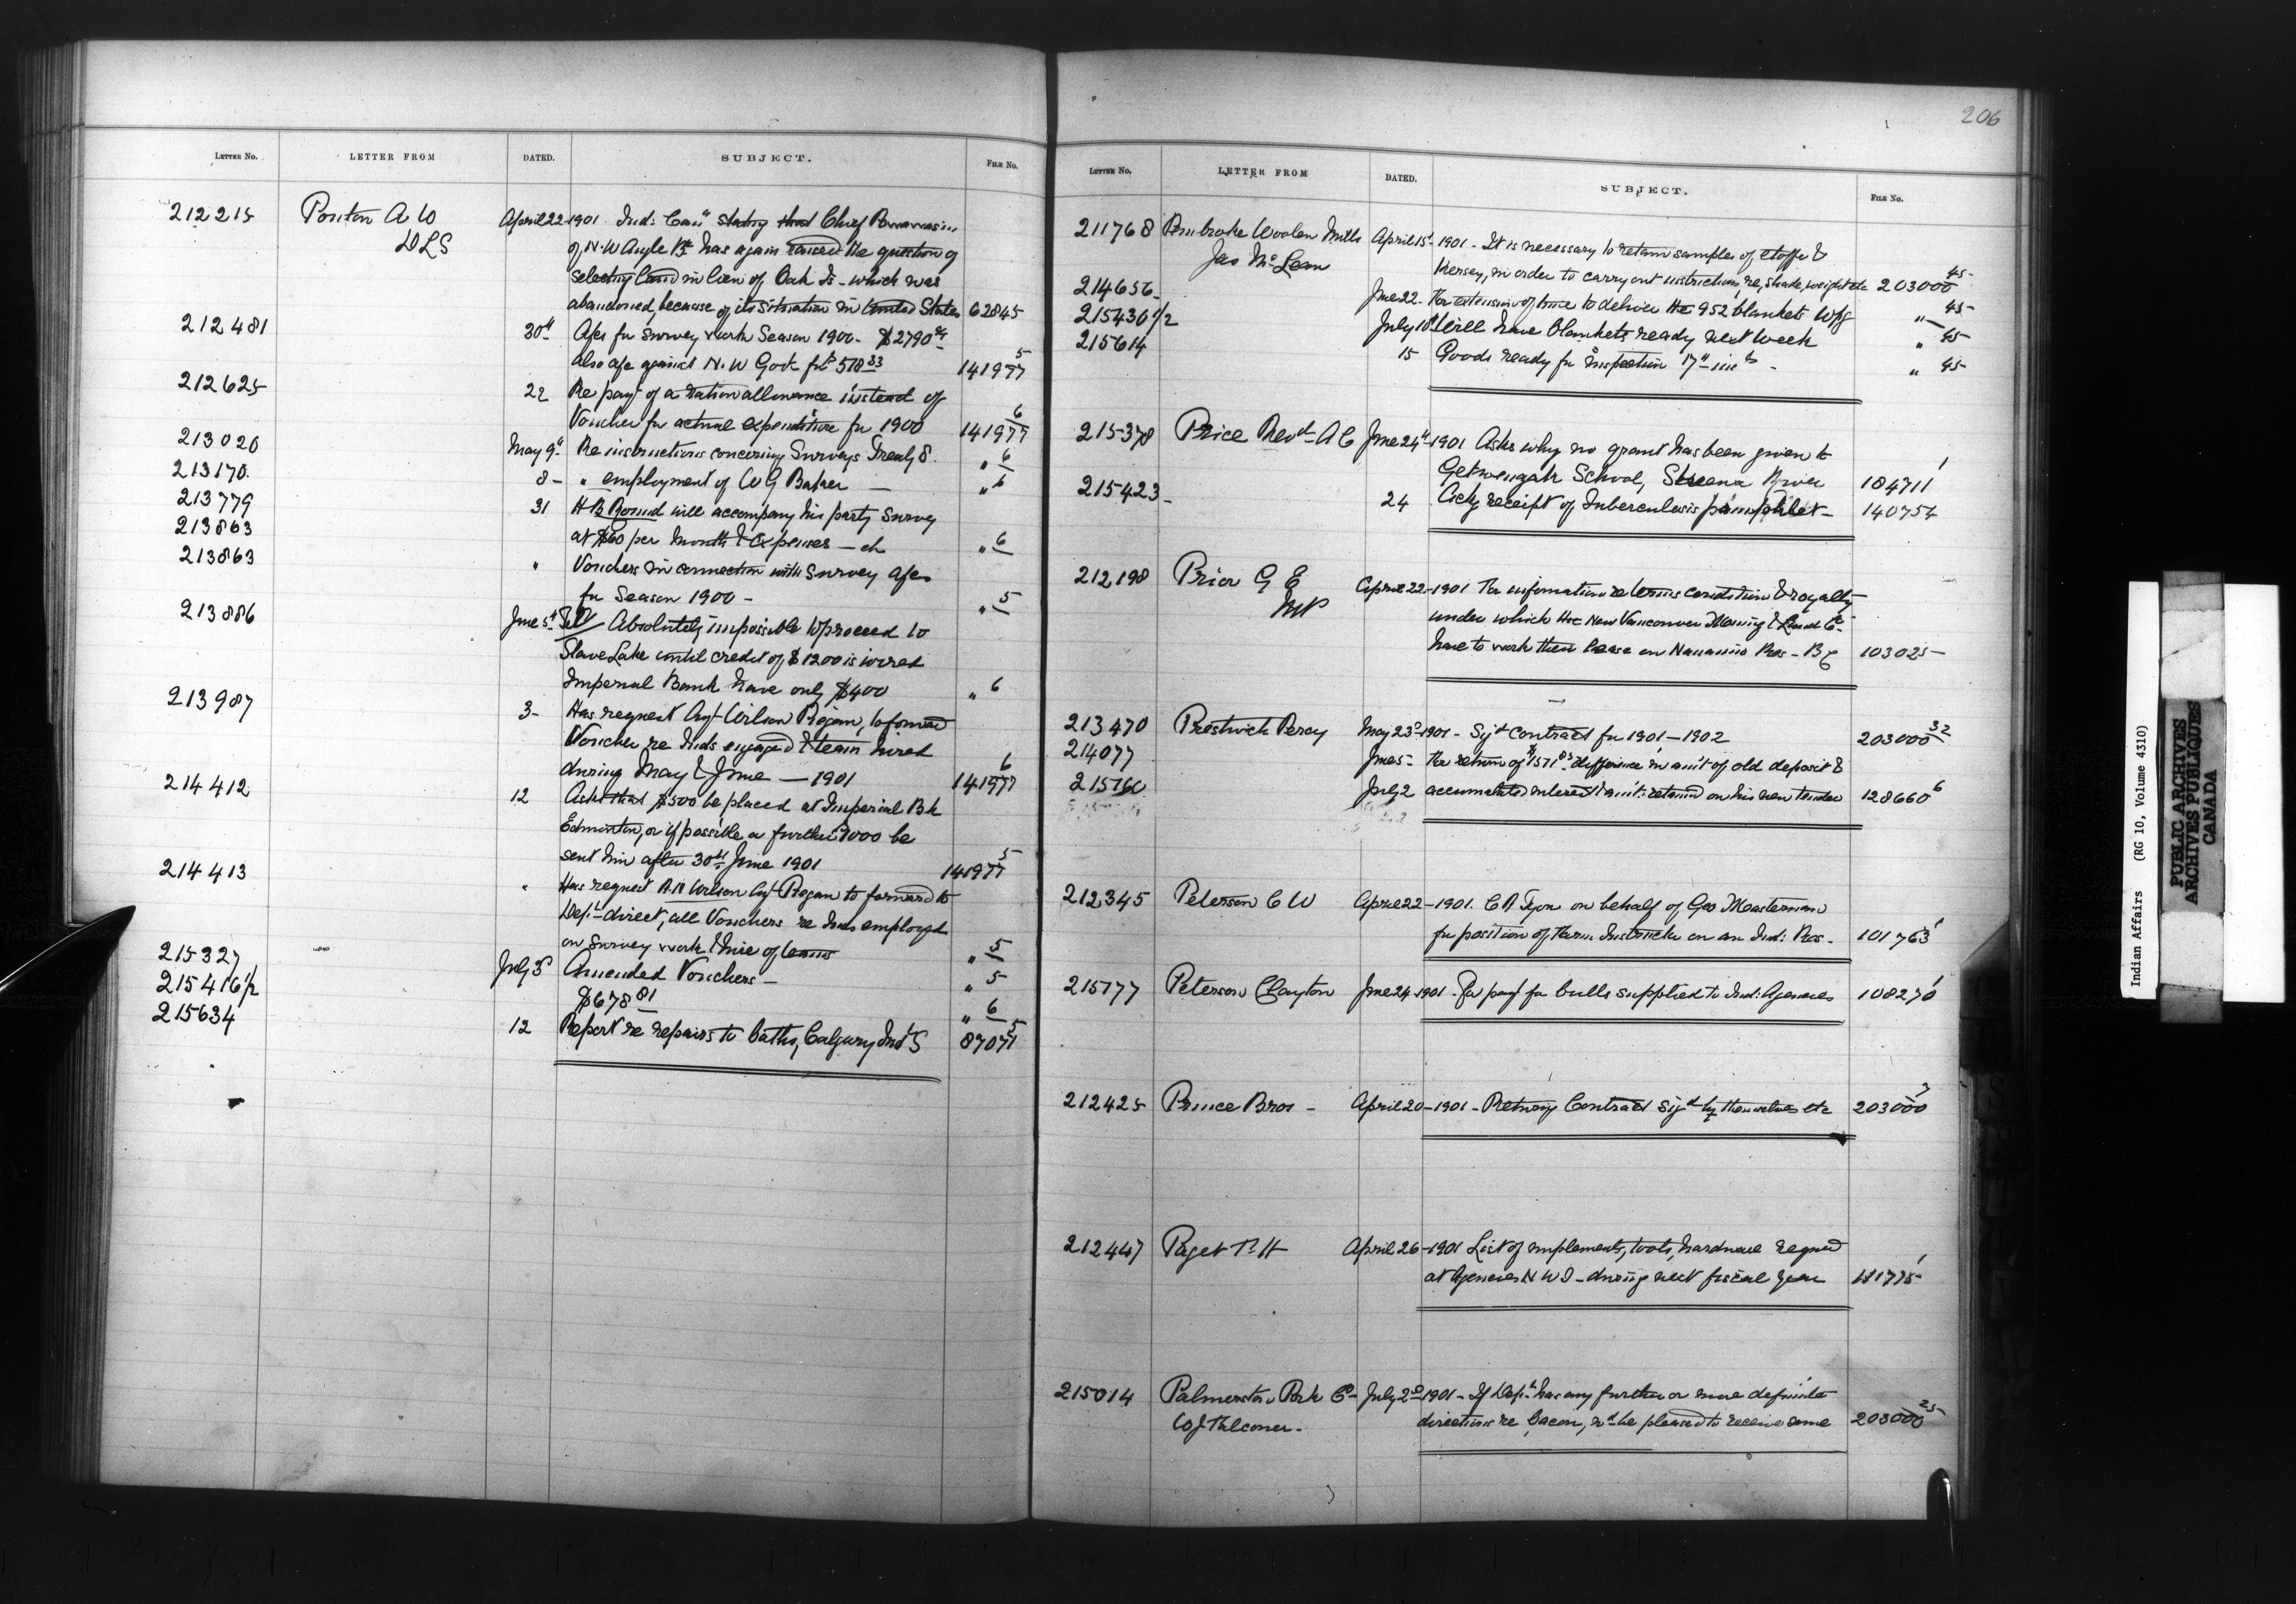 206
LETTER NO. LETTER FROM DATED. SUBJECT. FILE NO.
212215 Ponton A W April 22 1901 Ind: Com stating that Chief
DLS of N.W Angle has again raised the question of
selecting land in lieu of Oak Is - which was
abandoned, because of its situation in United States 62845
212481 30th A/cs for Survey work Season 1900 - $2790
also a/c against N.W Govt for 518 33 141977 5
212625 22 Re payt of a ration allowance instead of
Voucher for actual expenditure for 1900 141977 6
213020 May 9th Re instructions concerning Surveys Treaty 8. " 6
213170 8 - " employment of W G Baker - " 6
213779 31 H B Round will accompany his party Survey
213863 at $60 per Month & Expenses - " 6
213863 " Vouchers in connection with Survey a/cs
for Season 1900 - " 5
213886 June 5th Tel/ Absolutely impossible to proceed to
Slave Lake until credit of $1200 is wired
Imperial Bank have only $400 " 6
213987 3 - Has request Agt Wilson Piegan, to forward
Voucher re Inds engaged & team hired
during May & June - 1901 141977 6
214412 12 Asks that $500 be placed at Imperial Bk
Edmonton, or if possible a further 1000 be
sent him after 30th June 1901 141977 5
214413 " Has request R.N Wilson Agt Piegan to forward to
Dept direct, all Vouchers re Inds employed
on Survey work & hire of teams " 5
215327 July 3d Amended Vouchers - " 5
215416 1/2 $678 81 " 6
215634 12 Report re repairs to baths, Calgary Ind S 87071 5
LETTER NO. LETTER FROM DATED. SUBJECT. FILE NO.
211768 Pembroke Woolen Mills April 15 - 1901 - It is necessary to retain samples of etoffe &
Jas McLean Kersey, in order to carry out instructions re, shade, weight etc 203000 45
214656 - June 22 - For extension of time to deliver the 952 blankets Wpg " 45
215430 1/2 July 10th Will have blankets ready next week " 45
215614 15 Goods ready for inspection 17th inst - " 45
215378 Price Revd A E June 24th 1901 Asks why no grant has been given to
Getwengak School, Skeena River 184711 1
215423 - 24 Ackg receipt of Tuberculosis pamphlet - 140754
212198 Prior G E April 22 - 1901 For information re terms condition & royalty
MP under which the New Vancouver Mining & Land Co -
have to work their lease on Nanaimo Res - BC 103025 -
213470 Prestwich Percy May 23d 1901 - Sigd contract for 1901 - 1902 203000 32
214077 June 5 - For return of $1571 difference in amt of old deposit &
215160 July 2 accumulated interest & amt: retained on his new tender 128660 6
212345 Peterson C W April 22 - 1901. on behalf of Geo Masterman
for position of Farm Instructor on an Ind: Res - 101763 1
215177 Peterson Clayton June 24 1901 - For payt for bulls supplied to Ind: Agencies 108270 1
212425 Prince Bros - April 20 - 1901 - Retung Contract Sigd by themselves etc 203000 7
212447 Paget P. H April 26 - 1901 List of implements, tools, hardware reqred
at Agencies N W T - during next fiscal year 181775 1
215014 Palmerston Pork Co - July 2d - 1901 - If Dept has any further or more definite
W J Falconer - directions re bacon, wd be pleased to receive same 203000 25
Indian Affairs (RG 10, Volume 4310)
PUBLIC ARCHIVES
ARCHIVES PUBLIQUES
CANADA